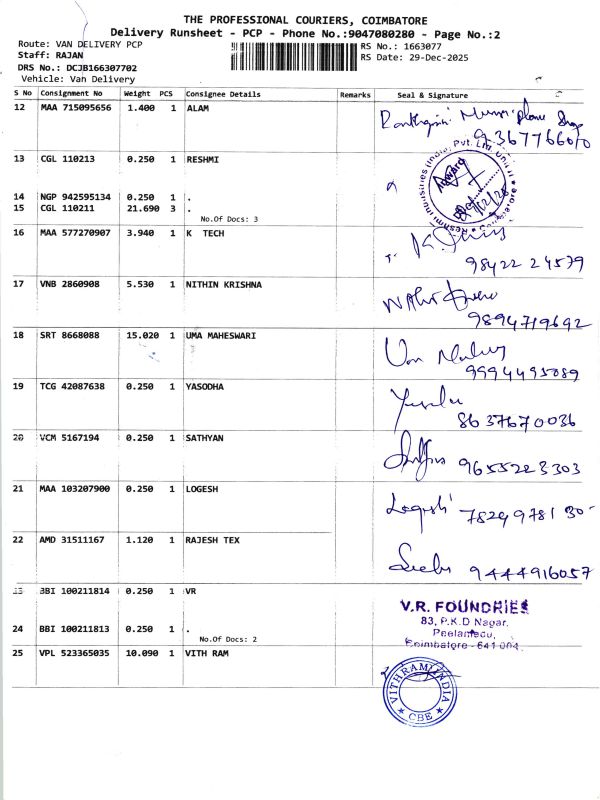 THE PROFESSIONAL COURIERS, COIMBATORE
Delivery Runsheet - PCP - Phone No.:9047080280 - Page No.:2
Route: VAN DELIVERY PCP
RS No.: 1663077
Staff: RAJAN
RS Date: 29-Dec-2025
DRS No.: DCJB166307702
Vehicle: Van Delivery
S No Consignment No Weight PCS Consignee Details Remarks Seal & Signature
12 MAA 715095656 1.400 1 ALAM
9367766010
13 CGL 110213 0.250 1 RESHMI
14 NGP 942595134 0.250 1 .
15 CGL 110211 21.690 3 .
No.Of Docs: 3
16 MAA 577270907 3.940 1 K TECH
98422 24579
17 VNB 2860908 5.530 1 NITHIN KRISHNA
9894719692
18 SRT 8668088 15.020 1 UMA MAHESWARI
9994495089
19 TCG 42087638 0.250 1 YASODHA
8637670036
20 VCM 5167194 0.250 1 SATHYAN
9655223303
21 MAA 103207900 0.250 1 LOGESH
Logesh 78249781 30-
22 AMD 31511167 1.120 1 RAJESH TEX
9444916057
23 BBI 100211814 0.250 1 VR
V.R. FOUNDRIES
83, P.K.D Nagar,
Peelamedu,
Coimbatore - 641 004.
24 BBI 100211813 0.250 1 .
No.Of Docs: 2
25 VPL 523365035 10.090 1 VITH RAM
VITHRAM INDIA
CBE